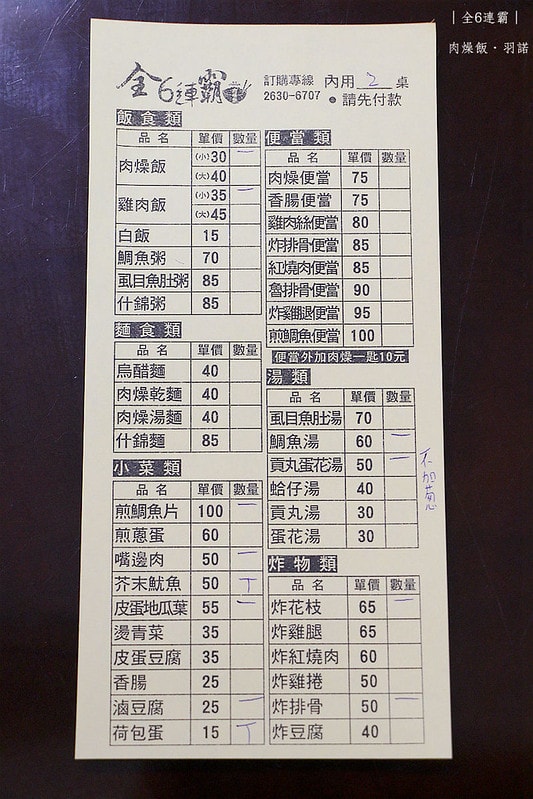 ｜全6連霸｜
肉燥飯．羽諾
全6連霸
訂購專線 內用 2 桌
2630-6707 ●請先付款
飯食類
品名 單價 數量
肉燥飯 (小)30 一
(大)40
雞肉飯 (小)35 一
(大)45
白飯 15
鯛魚粥 70
虱目魚肚粥 85
什錦粥 85
麵食類
品名 單價 數量
烏醋麵 40
肉燥乾麵 40
肉燥湯麵 40
什錦麵 85
小菜類
品名 單價 數量
煎鯛魚片 100 一
煎蔥蛋 60
嘴邊肉 50 一
芥末魷魚 50 丅
皮蛋地瓜葉 55 一
燙青菜 35
皮蛋豆腐 35
香腸 25
滷豆腐 25 一
荷包蛋 15 丅
便當類
品名 單價 數量
肉燥便當 75
香腸便當 75
雞肉絲便當 80
炸排骨便當 85
紅燒肉便當 85
魯排骨便當 90
炸雞腿便當 95
煎鯛魚便當 100
便當外加肉燥一匙10元
湯類
品名 單價 數量
虱目魚肚湯 70
鯛魚湯 60 一
貢丸蛋花湯 50 一
蛤仔湯 40
貢丸湯 30
蛋花湯 30
不加蔥
炸物類
品名 單價 數量
炸花枝 65 一
炸雞腿 65
炸紅燒肉 60
炸雞捲 50
炸排骨 50 一
炸豆腐 40